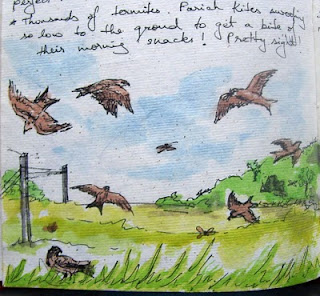 * Thousands of termites. Pariah Kites swooping
so low to the ground to get a bite of
their morning snacks! Pretty sight!